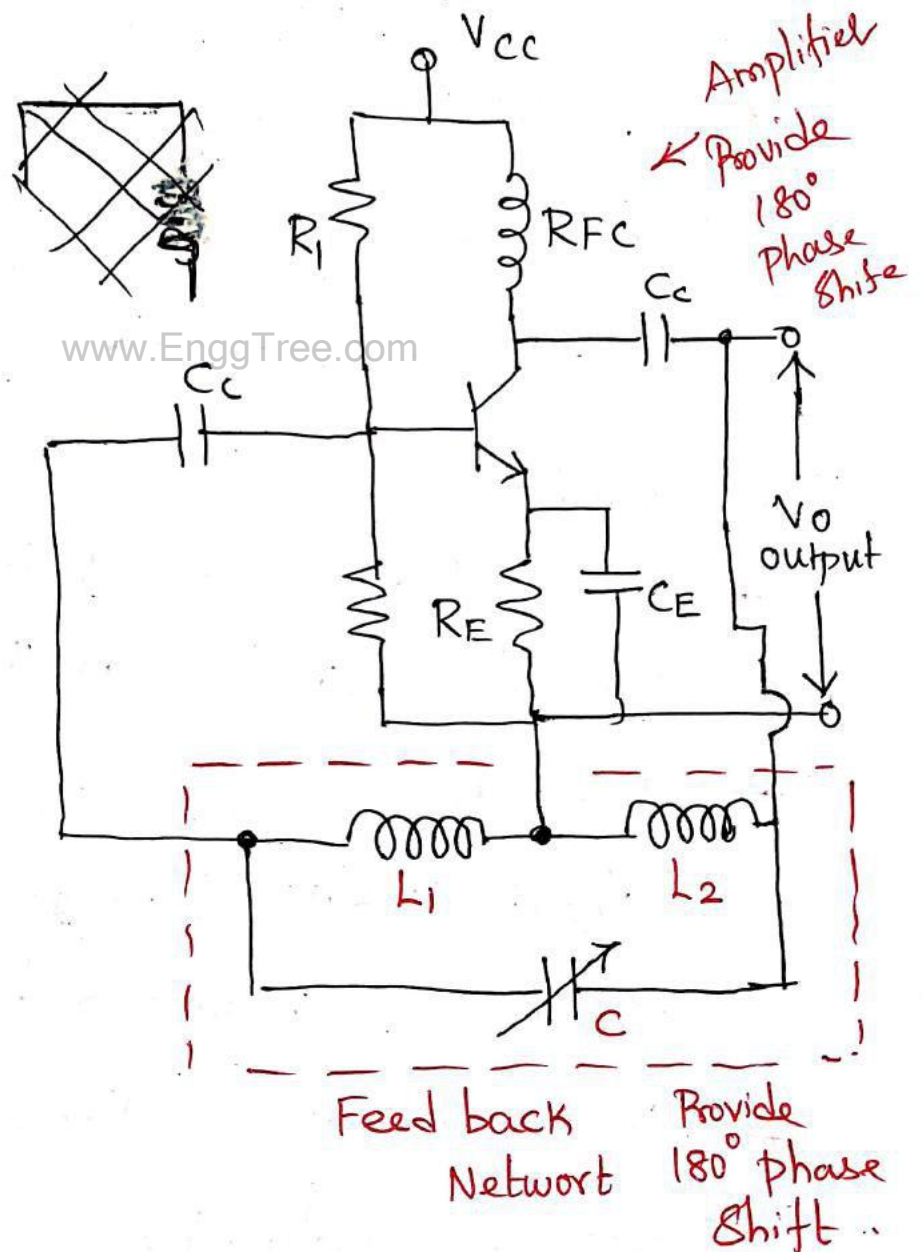 VCC
Amplifier
Provide
180°
Phase
Shite
R1
RFC
CC
www.EnggTree.com
CC
VO
output
RE
CE
L1
L2
C
Feed back
Networt
Provide
180° phase
Shift ..